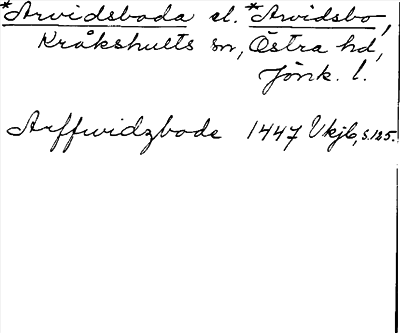 *Arvidsboda el. *Arvidsbo,
Kråkshults sn, Östra hd,
Jönk. l.
Arffwidzbode 1447 Vkjb, s. 125.